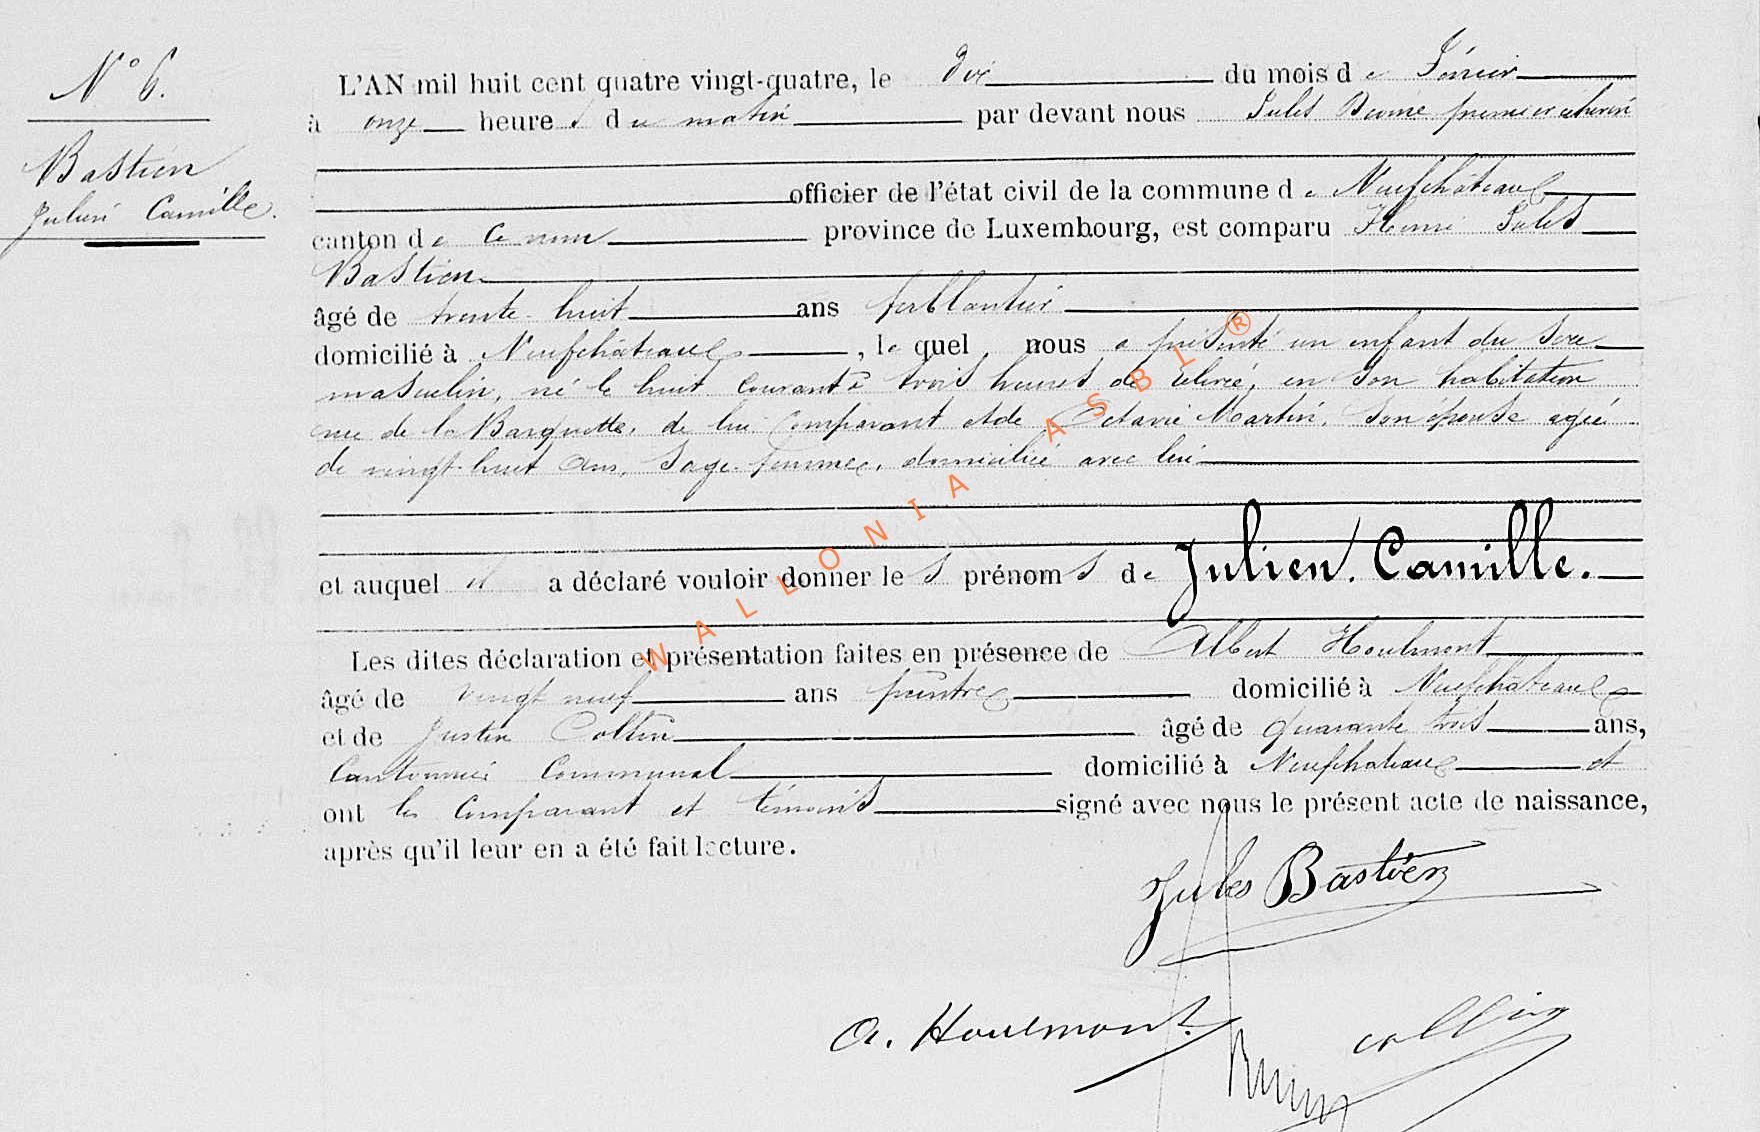 N° 6.
Bastien
Julien Camille.
L'AN mil huit cent quatre vingt-quatre, le dix du mois de
à onze heures du matin par devant nous Jules premier échevin
officier de l'état civil de la commune de Neufchâteau
canton de ce nom province de Luxembourg, est comparu Henri Jules
Bastien
âgé de trente huit ans ferblantier
domicilié à Neufchâteau, lequel nous a présenté un enfant du sexe
masculin, né le huit courant à trois heures de relevée, en son habitation
rue de la Barquette, de lui comparant et de Octavie Martin, son épouse agée
de vingt-huit ans, sage-femme, domiciliée avec lui
et auquel il a déclaré vouloir donner les prénoms de Julien, Camille.
Les dites déclaration et présentation faites en présence de Albert Houlmont
âgé de vingt neuf ans peintre domicilié à Neufchâteau
et de Justin Collin âgé de quarante trois ans,
Cantonnier Communal domicilié à Neufchateau et
ont les comparant et témoins signé avec nous le présent acte de naissance,
après qu'il leur en a été fait lecture.
Jules Bastien
A. Houlmont.
collin
WALLONIA ASBL ®